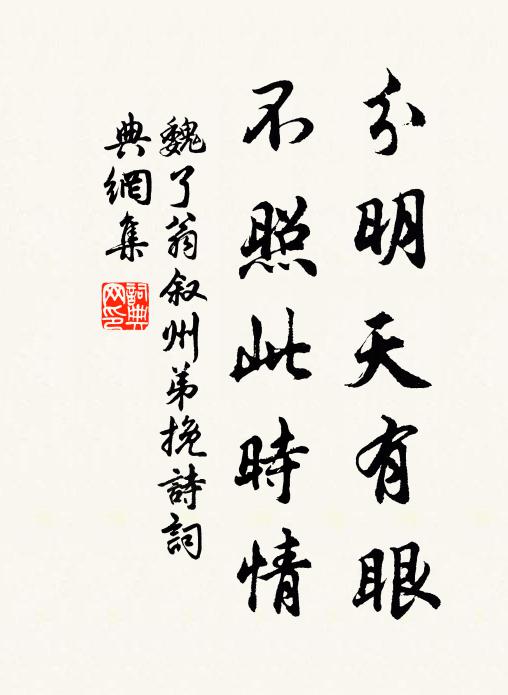 分明天有眼
不照此時情
魏了翁叙州弟挽詩詞
典網集
詞典
网印